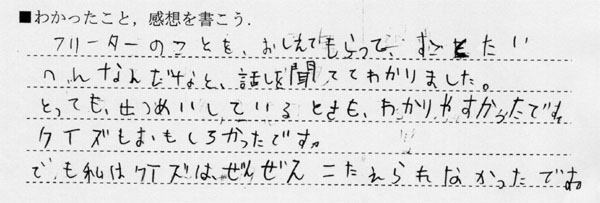 ■わかったこと，感想を書こう．
フリーターのことを、おしえてもらって、すごくたい
へんなんだなと、話しを聞いててわかりました。
とっても、せつめいしているときも、わかりやすかったです。
クイズもおもしろかったです。
でも私はクイズは、ぜんぜんこたえられなかったです。